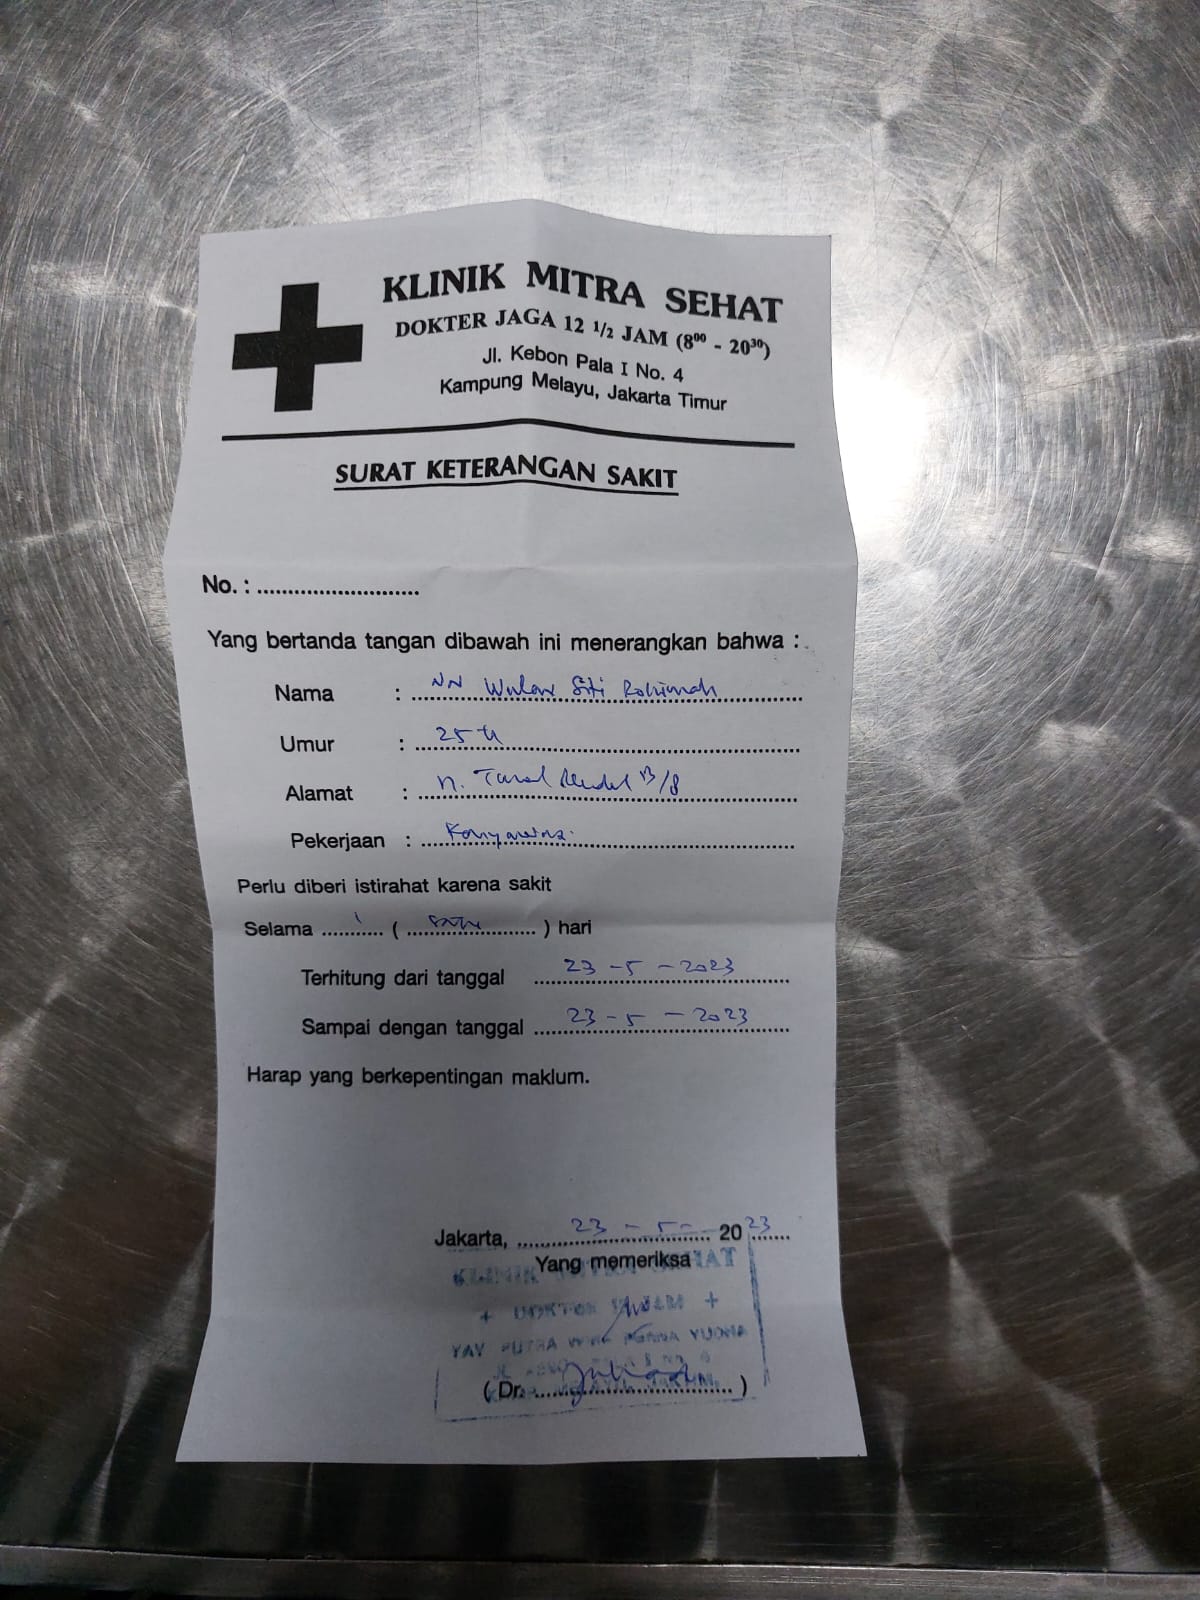 KLINIK MITRA SEHAT
DOKTER JAGA 12 1/2 JAM (8⁰⁰ - 20³⁰)
Jl. Kebon Pala I No. 4
Kampung Melayu, Jakarta Timur
SURAT KETERANGAN SAKIT
No. : ...........................
Yang bertanda tangan dibawah ini menerangkan bahwa :
Nama : NN Wulan Siti Rohimah
Umur : 25 th
Alamat : B/8
Pekerjaan :
Perlu diberi istirahat karena sakit
Selama 1 ( satu ) hari
Terhitung dari tanggal 23 - 5 - 2023
Sampai dengan tanggal 23 - 5 - 2023
Harap yang berkepentingan maklum.
Jakarta, 23 - 5 - 2023
Yang memeriksa
KLINIK MITRA SEHAT
YUDHA
( Dr. )